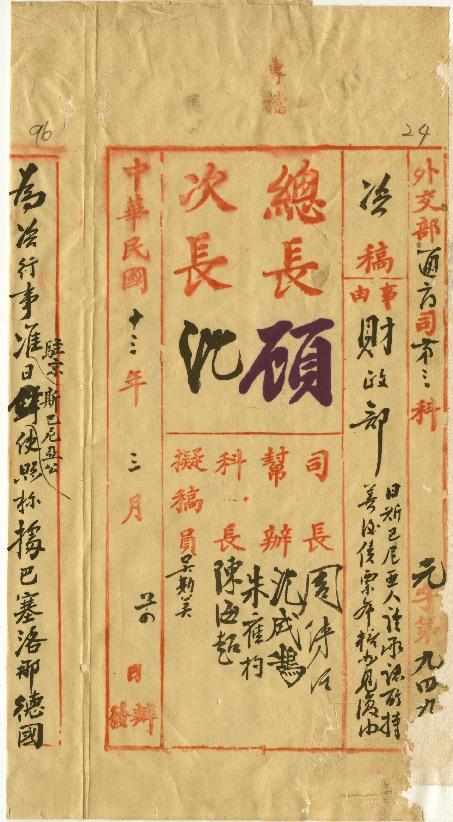 專檔
24
96
外交部通商司第三科
元字第九四九
咨稿
事由
財政部
日斯巴尼亞人請承認所持
善後債票
總長顧
次長沈
司長周傳經
幫辦沈成鵠
朱應杓
科長陳海超
擬稿員吳斯美
中華民國十三年三月廿四日
辦發
為咨行事准駐京日斯巴尼亞公使照稱據巴塞洛那德國